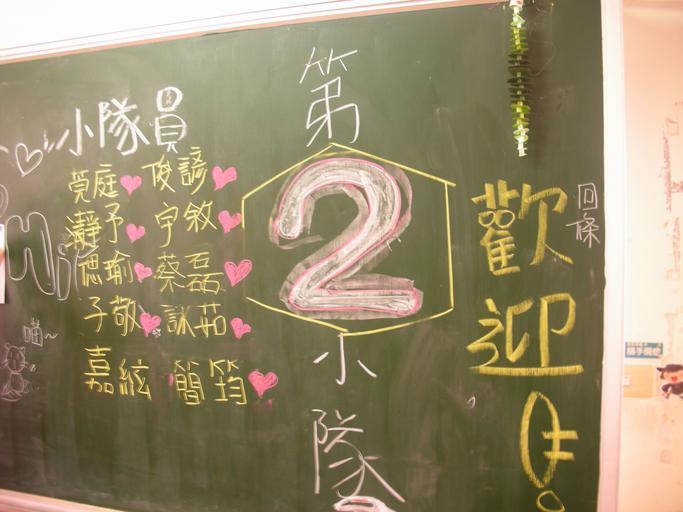 小隊員
筦庭 俊諺
瀞予 宇敘
偲瑜 蔡磊
子敬 詠茹
嘉絃 簡筠
喵~
第
2
小
隊
歡
迎
回條